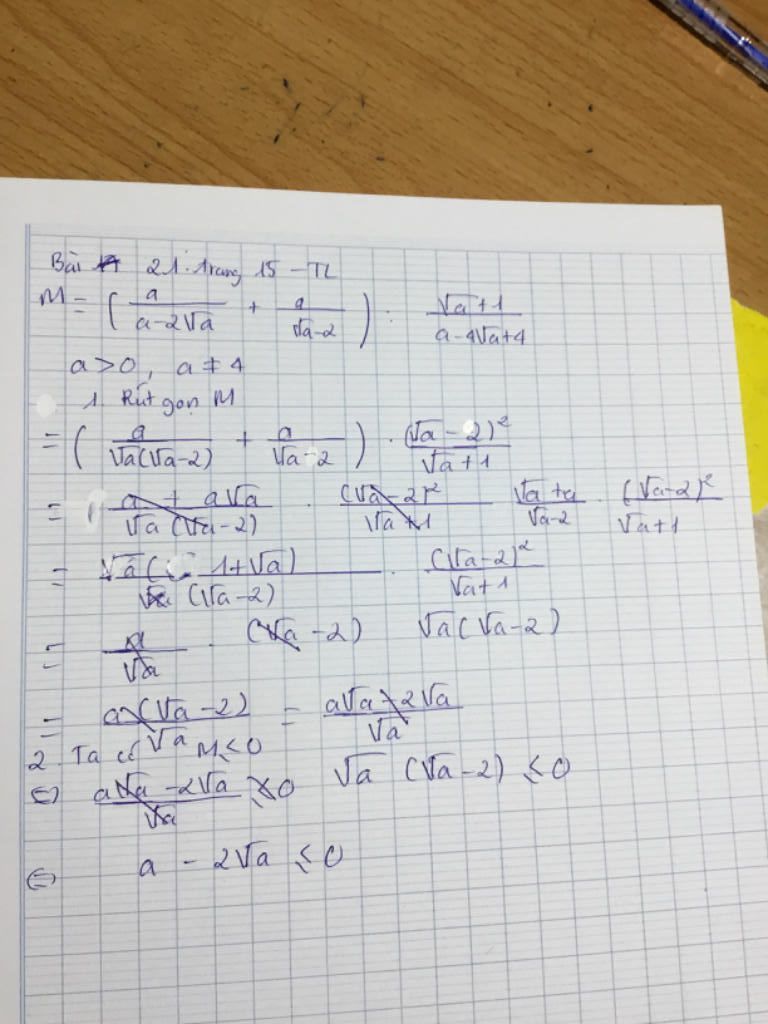 Bài 21. trang 15 - TL
M = ( a / (a-2√a) + a / (√a-2) ) : (√a+1) / (a-4√a+4)
a > 0, a ≠ 4
1. Rút gọn M
= ( a / (√a(√a-2)) + a / (√a-2) ) . (√a-2)² / (√a+1)
= (a + a√a) / (√a(√a-2)) . (√a-2)² / (√a+1) (√a+a) / (√a-2) . (√a-2)² / (√a+1)
= √a(1+√a) / (√a-2) . (√a-2)² / (√a+1)
= a / √a . (√a-2) √a(√a-2)
= a(√a-2) / √a = (a√a-2√a) / √a
2. Ta có M ≤ 0
⇔ (a√a-2√a) / √a ≤ 0 √a (√a-2) ≤ 0
⇔ a - 2√a ≤ 0